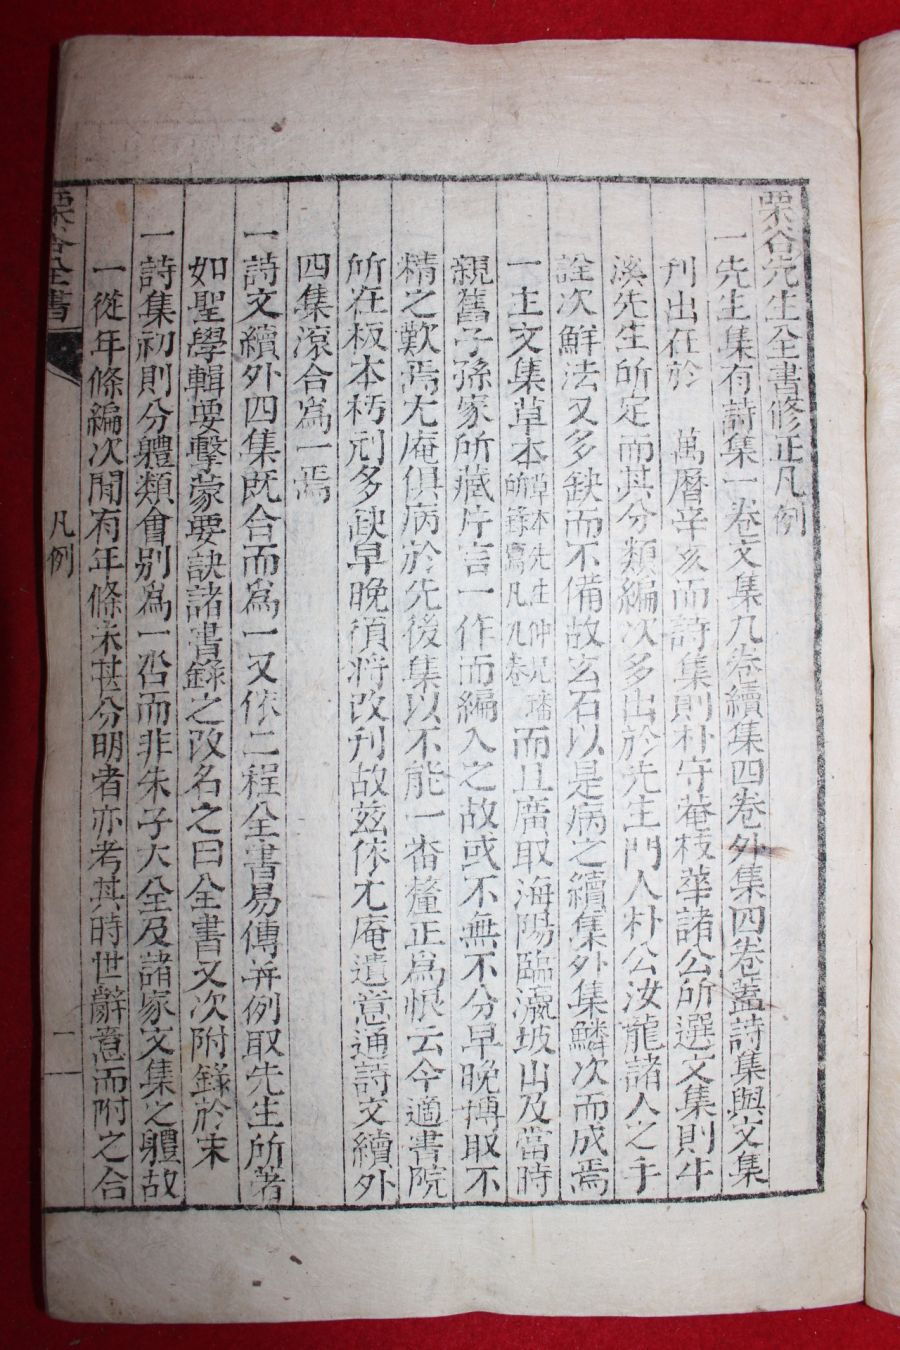 栗谷先生全書修正凡例
一先生集有詩集一卷文集九卷續集四卷外集四卷蓋詩集與文集
刋出在於 萬曆辛亥而詩集則朴守菴枝華諸公所選文集則牛
溪先生所定而其分類編次多出於先生門人朴公汝龍諸人之手
詮次鮮法又多缺而不備故玄石以是病之續集外集鱗次而成焉
一主文集草本草本先生仲兄璠所謄寫凡九卷而且廣取海陽臨瀛坡山及當時
親舊子孫家所藏片言一作而編入之故或不無不分早晚搏取不
精之歎焉尤庵俱病於先後集以不能一番釐正爲恨云今適書院
所在板本朽刓多缺早晚須將改刋故茲依尤庵遺意通詩文續外
四集滾合爲一焉
一詩文續外四集旣合而爲一又依二程全書易傳幷例取先生所著
如聖學輯要擊蒙要訣諸書錄之改名之曰全書又次附錄於末
一詩集初則分體類會别爲一呇而非朱子大全及諸家文集之體故
一從年條編次間有年條未甚分明者亦考其時世辭意而附之合
栗谷全書
凡例
一